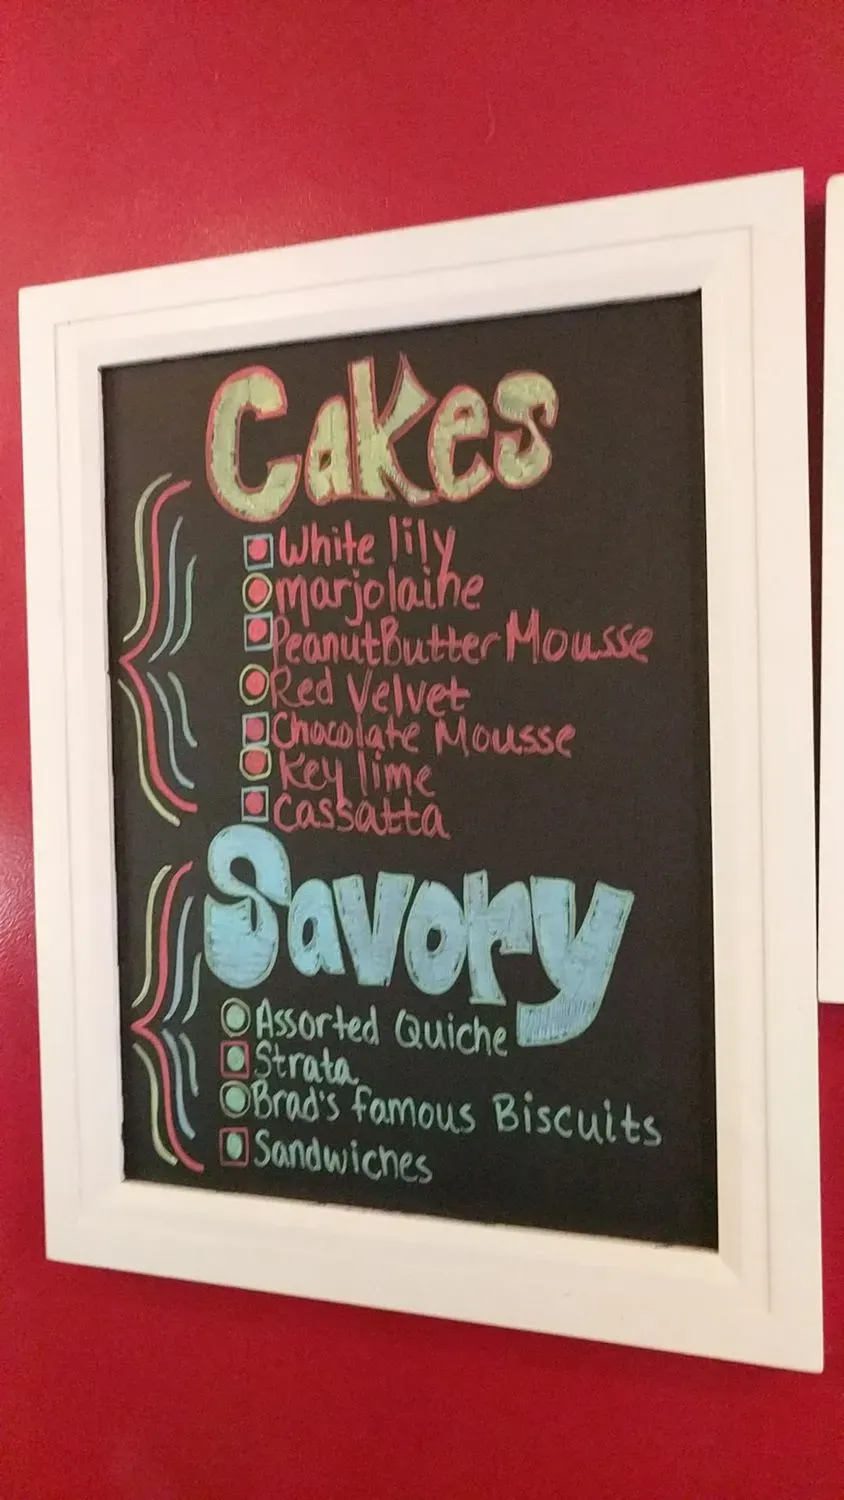 Cakes
White lily
marjolaine
Peanut Butter Mousse
Red Velvet
Chocolate Mousse
Key lime
Cassatta
Savory
Assorted Quiche
Strata
Brad's famous Biscuits
Sandwiches